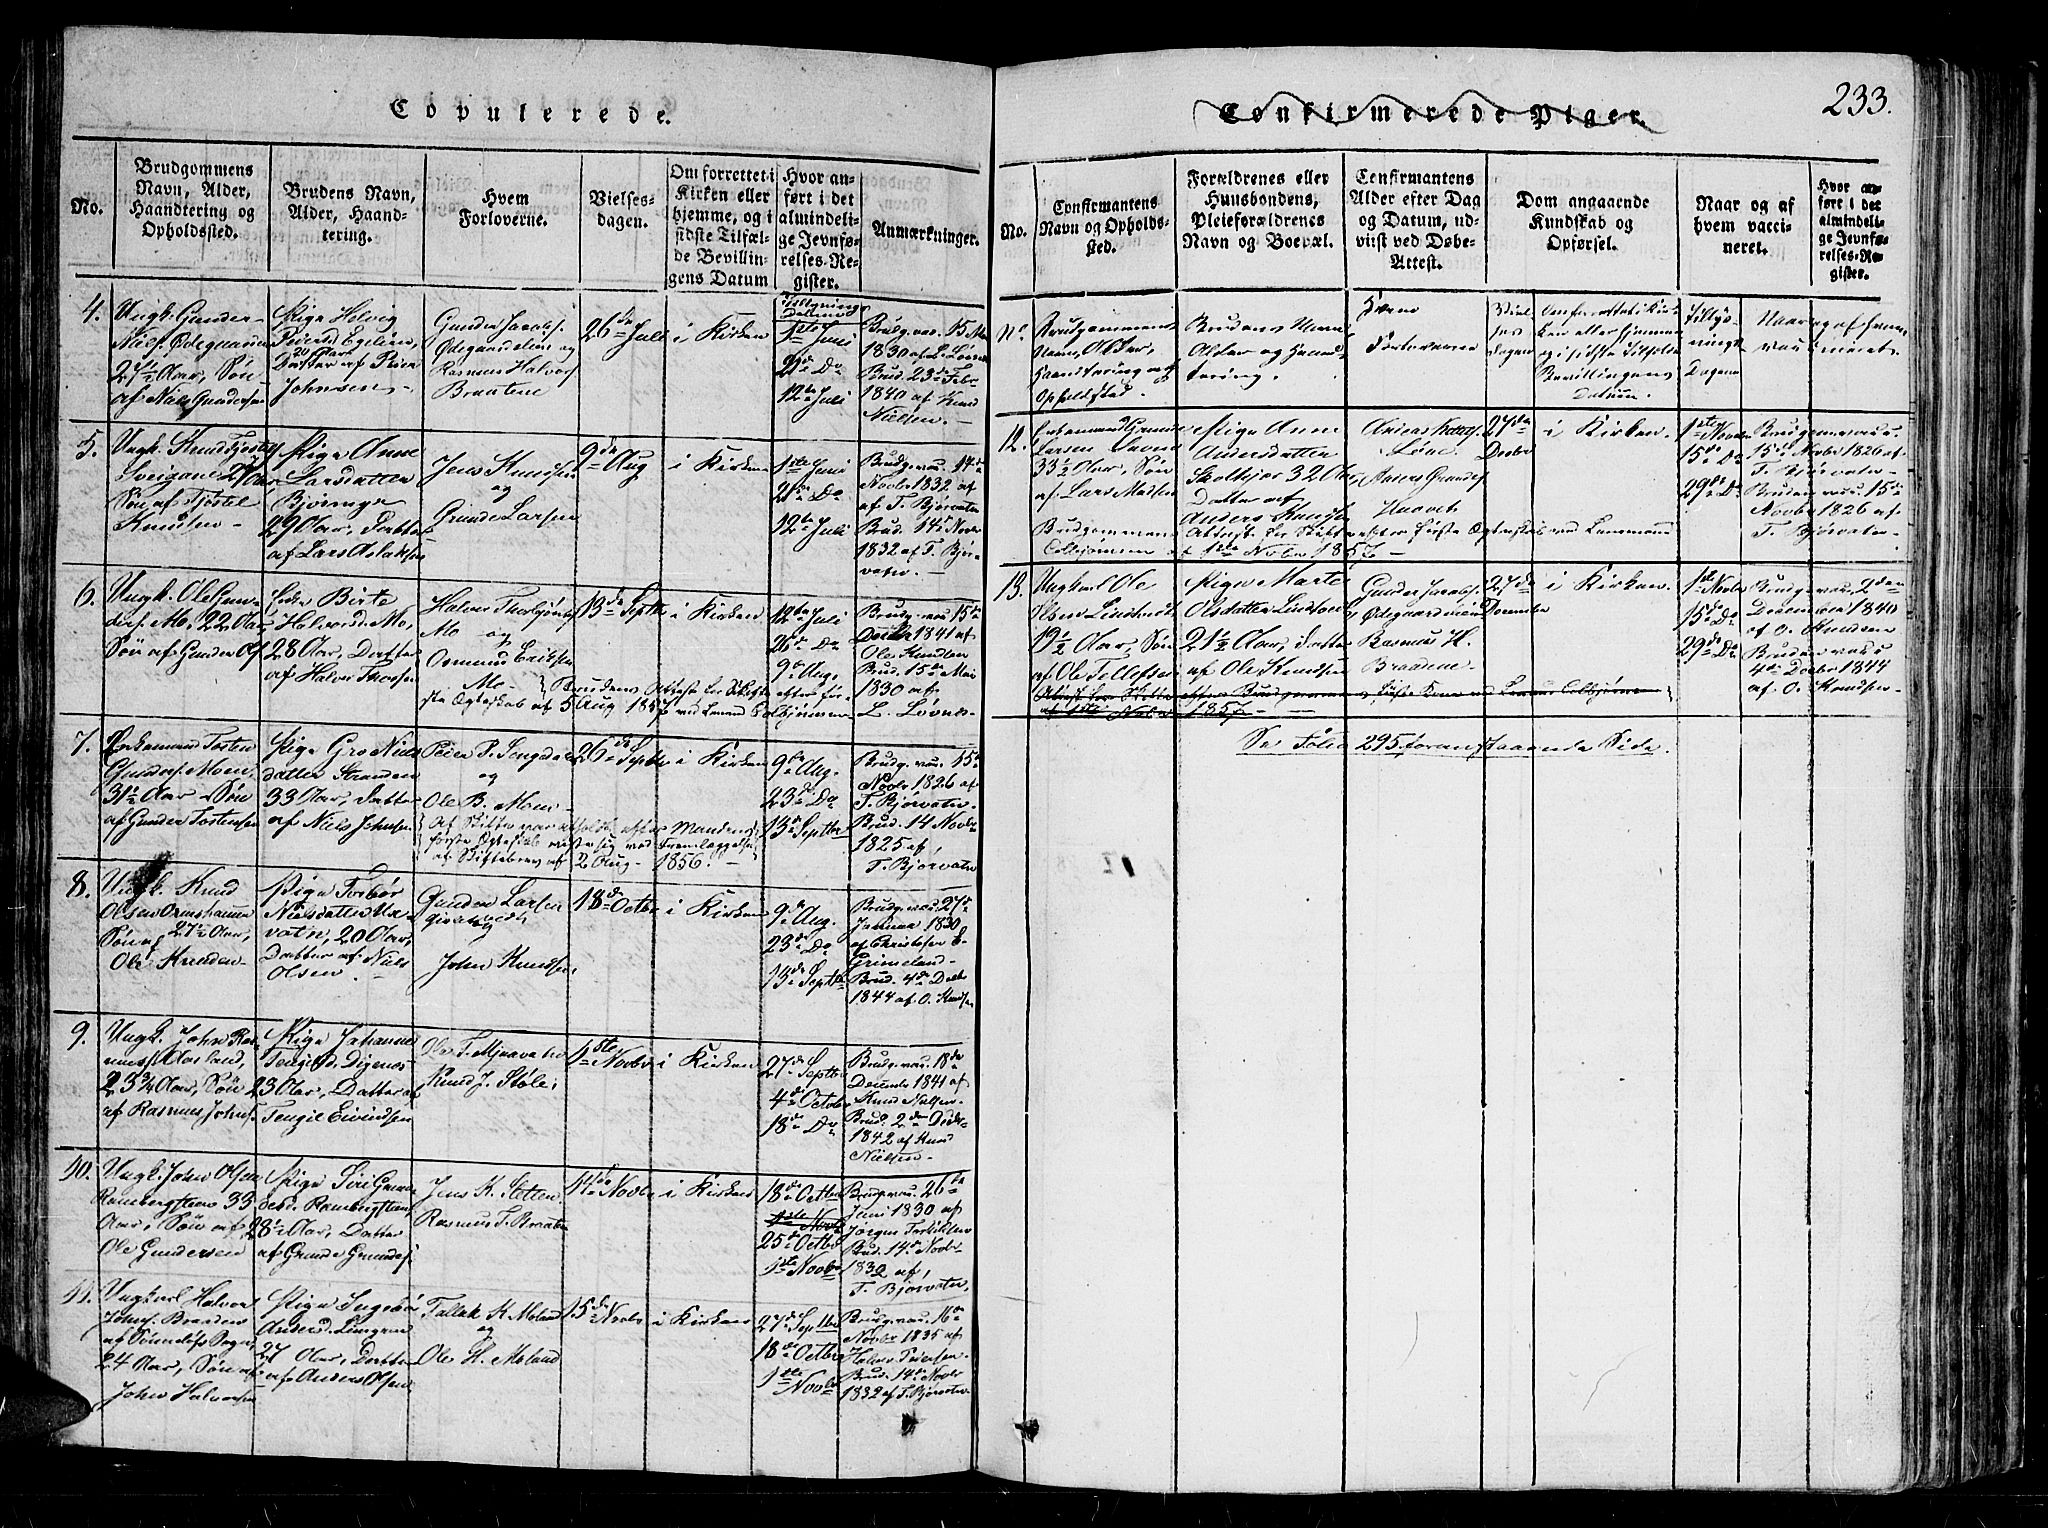 Copulerede.
No.
Brudgommens
Navn, Alder,
Haandtering og
Opholdssted.
Brudens Navn,
Alder, Haand-
tering.
Hvem
Forloverne.
Vielses-
dagen.
Om forrettet i
Kirken eller
hjemme, og i
sidste Tilfæl-
de Bevillin-
gens Datum
Hvor an-
ført i det
almindeli-
ge Jevnfø-
relses-Re-
gister.
Anmærkninger.
4.
Ungk. Gunder
Nielss. Ødegaarden
27½ Aar, Søn
af Niels Gundersen
Pige Helvig
Peersd. Egelien,
20 Aar
Datter af Peder
Johnsen
Gunder Jacobs.
Ødegaardslien og
Rasmus Halvors.
Braatene
26de Juli
i Kirken
1ste Juni
21de Do
12te Juli
Brudg. vac. 15 Mai
1830 af L. Løvnes
Brud. 23de Febr
1840 af Knud
Nielsen.
5.
Ungk. Knud Tjostels.
29 Aar
Søn af Tjostel
Knudsen
Pige Anne
Larsdatter
Bjøringe
29 Aar, Datter
af Lars Aslaksen
Jens Knudsen
og
Gunde Larsen
9de Aug
i Kirken
1ste Juni
21de Do
12te Juli
Brudg. vac. 14de
Novbr 1832 af
T. Bjørvatn
Brud. 14de Novbr
1832 af T. Bjør-
vatn.
6.
Ungk. Ole Gun-
ders. Mo, 22 Aar
Søn af Gunder Ols.
Enke Birte
Halvorsd. Mo,
28 Aar, Datter
af Halvor Thorsen
Halvor Thorbjørns.
Mo
og
Osmund Eriksen
Mo
13de Septbr
i Kirken
12te Juli
26de Do
9de Aug.
Brudg. vac. 15de
Decbr 1841 af
Ole Knudsen
Brud. 15de Mai
1830 af
L. Løvnes
Brudens Attest for Skifte efter før-
ste Ægteskab af 5 Aug 1857 ved Lensmd Colbjørnsen
7.
Enkemand Tosten
Gunders. Moen,
31½ Aar Søn
af Gunder Tostensen
Pige Gro Niels-
datter Stranden
33 Aar, Datter
af Niels Johnsen
Peder P. Songedal
og
Ole B. Moen
26de Septbr
i Kirken
9de Aug.
23de Do
13de Septbr
Brudg. vac. 15de
Novbr 1826 af
T. Bjørvatn.
Brud. 14 Novbr
1825 af
T. Bjørvatn
At Skifte var afholdt efter Mandens
første Ægteskab viste sig ved Fremlæggelse
af Skiftebrev af 2 Aug. 1856.
8.
Ungk. Knud
Olsen Ormshammer
27½ Aar,
Søn af
Ole Knudsen
Pige Torbor
Nielsdatter Ux-
vatn, 20 Aar,
Datter af Niels
Olsen
Gunder Larsen
og
John Knudsen
18de Octbr
i Kirken
9de Aug.
23de Do
13de Septbr
Brudg. vac. 27de
Januar 1830
af Christofer E.
Grimeland
Brud. 4de Decbr
1844 af O. Knudsen
9.
Ungk. John Ras-
muss. Aasland,
23¾ Aar, Søn
af Rasmus Johns.
Pige Johanne
Tengilsd. Digenes
23 Aar, Datter af
Tengil Eivindsen
Ole T. Mjaavatn
Knud J. Støle
1ste Novbr
i Kirken
27de Septbr
4de Octobr
18de Do
Brudg. vac. 18de
Decmbr 1841 af
Knud Nielsen.
Brud. 2den Decbr
1842 af Knud
Nielsen
10.
Ungk. John Olsen
Rambergsteen 33
Aar, Søn af
Ole Gundersen
Pige Siri Gunde-
sesd. Rambergsteen,
28½ Aar, Datter
af Gunde Gundes.
Jens K. Sletten
Rasmus T. Braaten
14de Novbr
i Kirken
18de Octbr
1ste Novbr
25de Octbr
1ste Novbr
Brudg. vac. 26de
Juni 1830 af
Jørgen Terkildsen
Brud. 14de Novbr
1832 af
T. Bjørvatn
11.
Ungkarl Halvor
Johns. Braaden
af Søndelefs Sogn,
24 Aar, Søn af
John Halvorsen
Pige Ingebor
Andersd. Limgrav
27 Aar, Datter
af Anders Olsen
Tallak K. Moland
og
Ole H. Moland
15de Novbr
i Kirken
27de Septbr
18de Octbr
1ste Novbr
Brudg. vac. 16de
Novbr 1835 af
Halvor Peersen.
Brud. 14de Novbr
1832 af T. Bjørvatn
233.
Confirmerede Piger.
No.
Confirmantens
Navn og Opholds-
sted.
Forældrenes eller
Huusbondens,
Pleieforældrenes
Navn og Boepæl.
Confirmantens
Alder efter Dag
og Datum, ud-
viist ved Døbe-
Attest.
Dom angaaende
Kundskab og
Opførsel.
Naar og af
hvem vacci-
neret.
Hvor an-
ført i det
almindeli-
ge Jevnfø-
relses-Re-
gister.
No
Brudgommens
Navn, Alder,
Haandtering og
Opholdssted
Brudens Navn
Alder og Haand-
tering.
Hvem
Forloverne
Viel-
ses
dagen
Om forrettet i Kir-
ken eller hjemme
og i sidste Tilfælde
Bevillingens
Datum
Tillys-
nings
Dagene
Naar og af hvem
vaccineret.
12.
Enkemand Gunder
Larsen Savnes
33½ Aar, Søn
af Lars Madsen
Pige Anne
Andersdatter
Skaltjør 32 Aar,
Datter af
Anders Knudsen
Løne.
Haavet
27de
Decbr
i Kirken.
1ste Novbr
15de Do
29de Do
Brudgommen vac.
15de Novbr 1826 af
T. Bjørvatn.
Bruden vac. 15de
Novbr 1826 af
T. Bjørvatn
Brudgommens Attest for Skifte efter første Ægteskab ved Lensmand
Colbjørnsen af 1ste Novbr 1857
13.
Ungkarl Ole
Olsen Lindtveit
19½ Aar, Søn
af Ole Tellefsen
Pige Marte
Olsdatter Lindtveit
21½ Aar, Datter
af Ole Knudsen
Gunder Jacobs.
Ødegaardslien
Rasmus H.
Braadene
27de
December
i Kirken
1ste Novbr
15de Do
29de Do
Brudg. vac. 2den
December 1840
af O. Knudsen
Bruden vac.
4de Decbr 1844
af O. Knudsen
Attest for Skifte efter Brudgommens første Kone ved Lensmd Colbjørnsen
af 1ste Novbr 1857
Se Folio 295 foranstaaende Side.